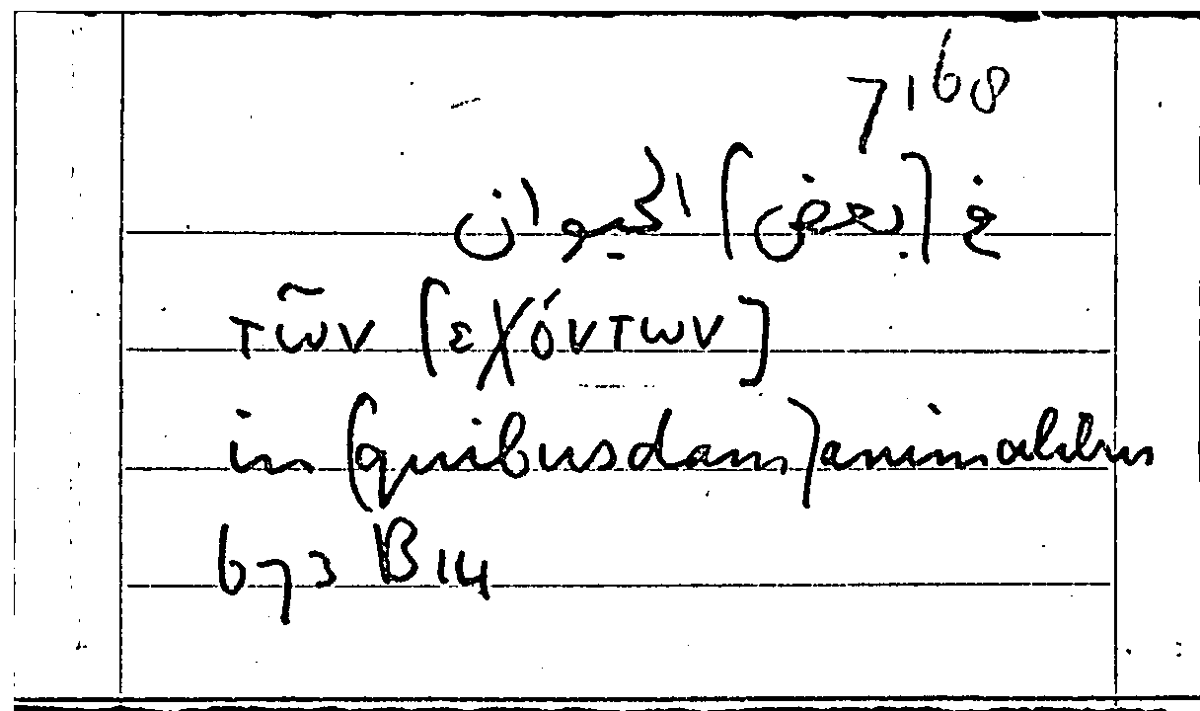 7168
في [بعض] الحيوان
τῶν [εχόντων]
in (quibusdam) animalibus
673 B14